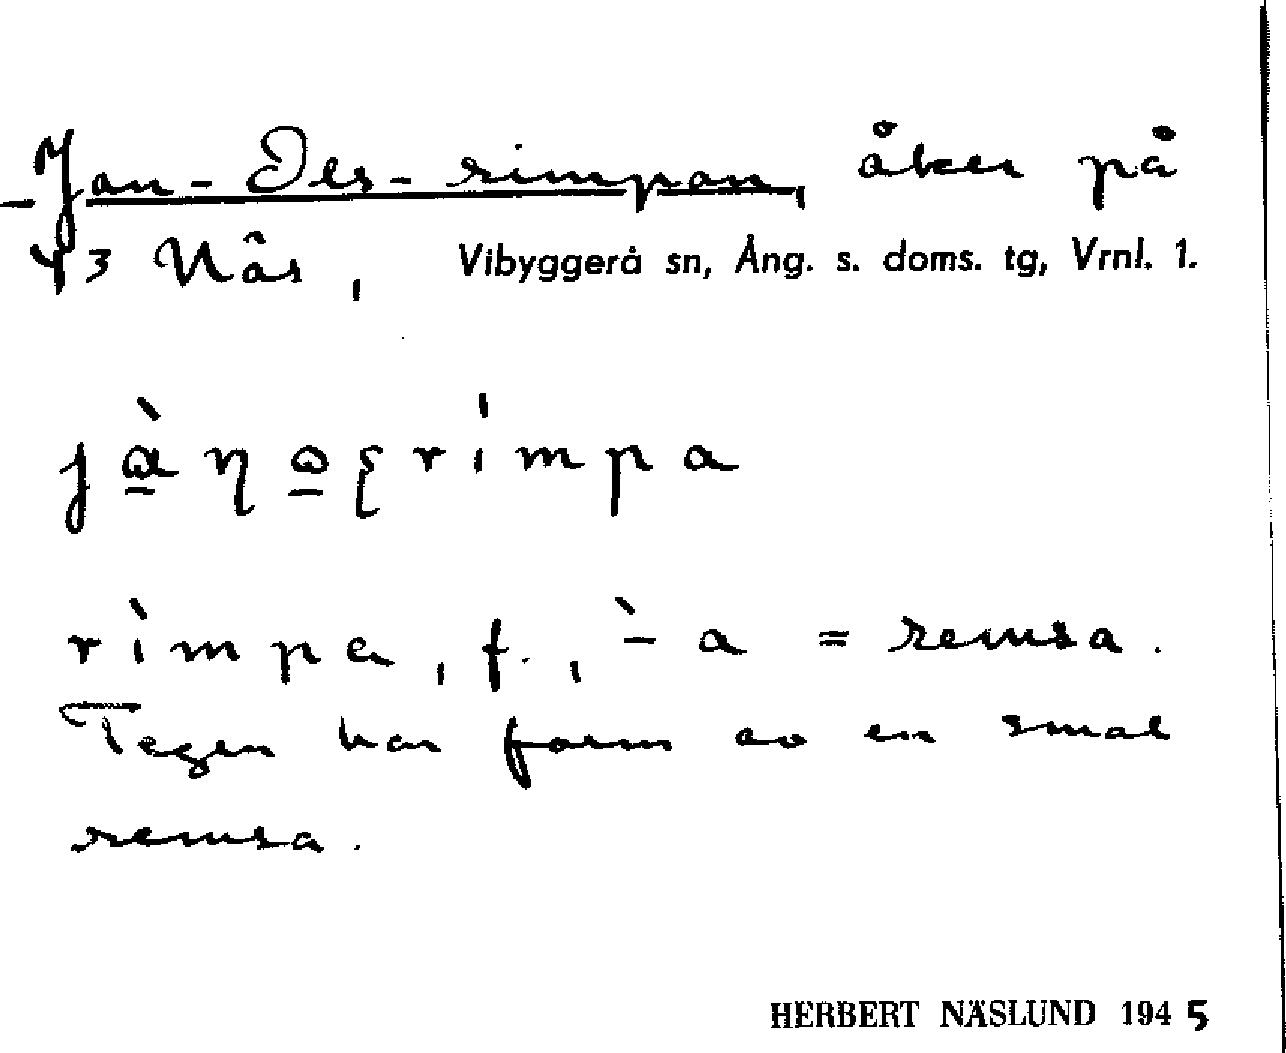 Jan-Ols-rimpan, åker på
43 Näs, Vibyggerå sn, Ång. s. doms. tg, Vrnl. 1.
rìmpa, f., ̀– a = remsa.
Tegen har form av en smal
remsa.
HERBERT NÄSLUND 1945